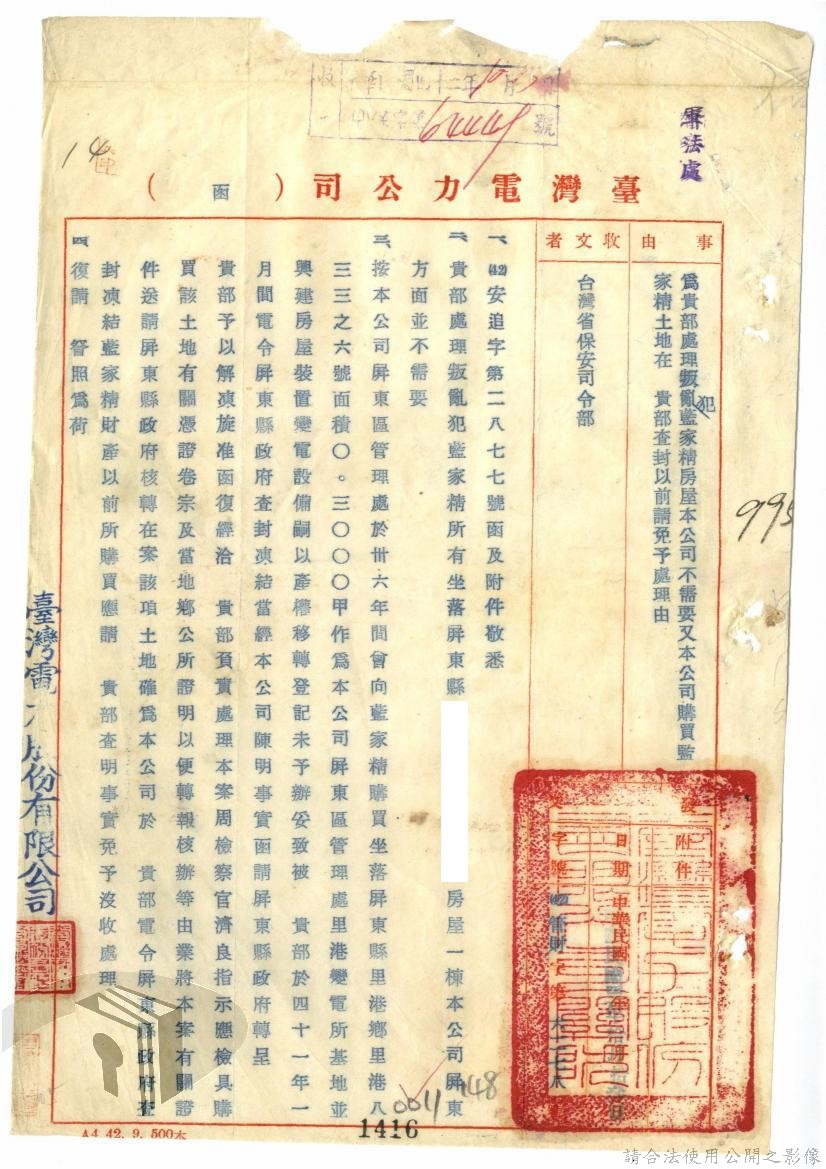 軍法處
臺灣電力公司（函）
事由
為貴部處理叛亂犯藍家精房屋本公司不需要又本公司購買藍
家精土地在　貴部查封以前請免予處理由
收文者
台灣省保安司令部
附件
日期
中華民國
字號
一、(42)安追字第二八七七號函及附件敬悉
二、貴部處理叛亂犯藍家精所有坐落屏東縣　房屋一棟本公司屏東
方面並不需要
三、按本公司屏東區管理處於卅六年間曾向藍家精購買坐落屏東縣里港鄉里港八
三三之六號面積〇。三〇〇〇甲作為本公司屏東區管理處里港變電所基地並
興建房屋裝置變電設備嗣以產權移轉登記未予辦妥致被　貴部於四十一年一
月間電令屏東縣政府查封凍結當經本公司陳明事實函請屏東縣政府轉呈
貴部予以解凍旋准函復經洽　貴部負責處理本案周檢察官濟良指示應檢具購
買該土地有關憑證卷宗及當地鄉公所證明以便轉報核辦等由業將本案有關證
件送請屏東縣政府核轉在案該項土地確為本公司於　貴部電令屏東縣政府查
封凍結藍家精財產以前所購買應請　貴部查明事實免予沒收處理
四、復請　督照為荷
臺灣電力股份有限公司
14
995
148
0011
1416
A4. 42. 9. 500本
請合法使用公開之影像